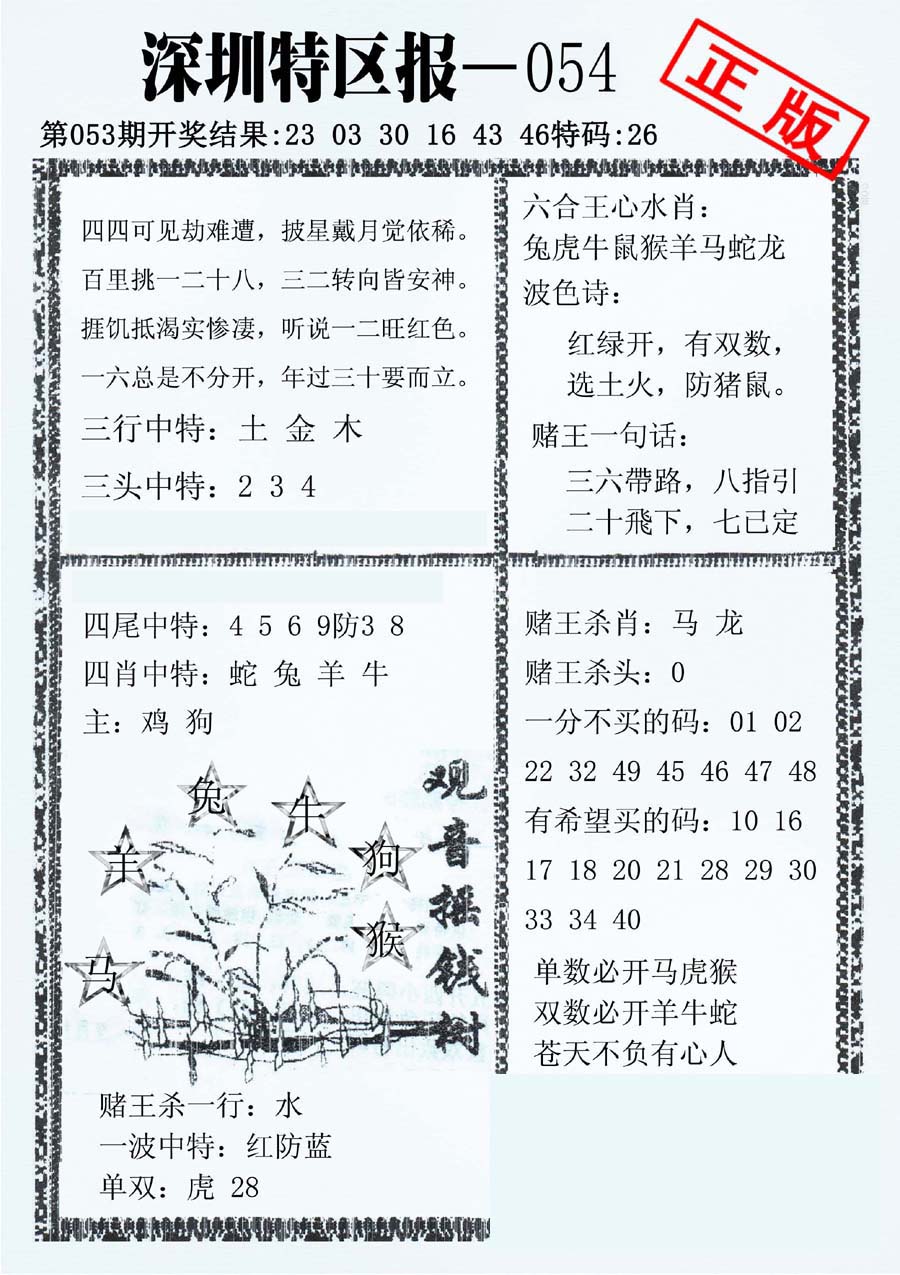 深圳特区报—054
正版
第053期开奖结果:23 03 30 16 43 46特码:26
四四可见劫难遭，披星戴月觉依稀。
百里挑一二十八，三二转向皆安神。
捱饥抵渴实惨凄，听说一二旺红色。
一六总是不分开，年过三十要而立。
三行中特：土 金 木
三头中特：2 3 4
六合王心水肖：
兔虎牛鼠猴羊马蛇龙
波色诗：
红绿开，有双数，
选土火，防猪鼠。
赌王一句话：
三六帶路，八指引
二十飛下，七已定
四尾中特：4 5 6 9防3 8
四肖中特：蛇 兔 羊 牛
主：鸡 狗
兔
牛
羊
狗
猴
马
观音摇钱树
赌王杀一行：水
一波中特：红防蓝
单双：虎 28
赌王杀肖：马 龙
赌王杀头：0
一分不买的码：01 02
22 32 49 45 46 47 48
有希望买的码：10 16
17 18 20 21 28 29 30
33 34 40
单数必开马虎猴
双数必开羊牛蛇
苍天不负有心人